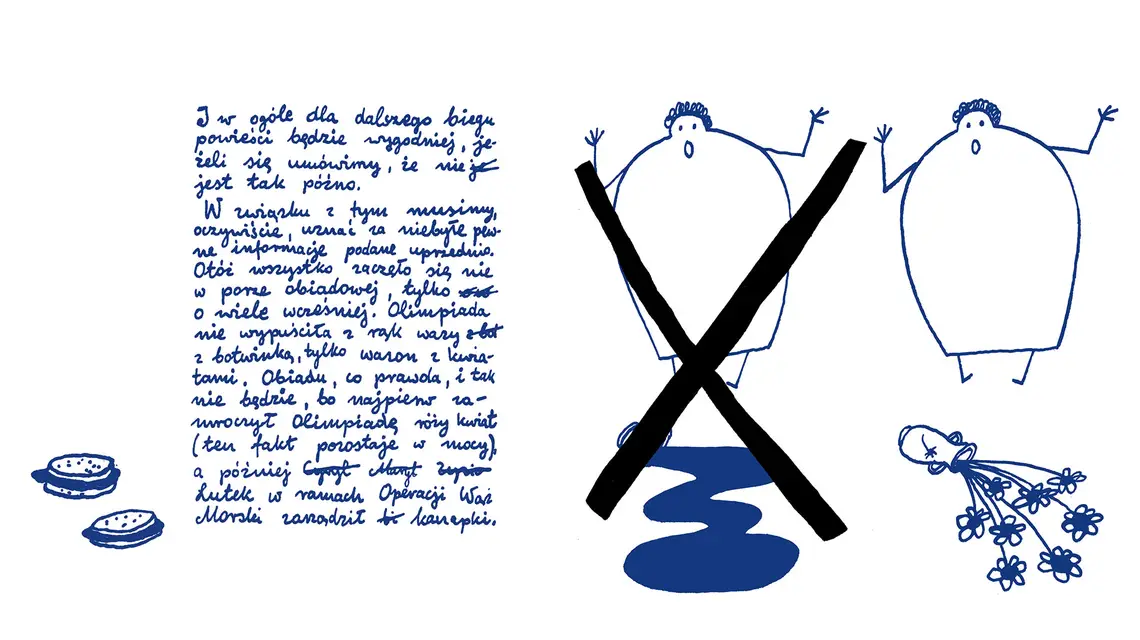 I w ogóle dla dalszego biegu
powieści będzie wygodniej, je-
żeli się umówimy, że nie je
jest tak późno.
W związku z tym musimy,
oczywiście, uznać za niebyłe pew-
ne informacje podane uprzednio.
Otóż wszystko zaczęło się nie
w porze obiadowej, tylko
o wiele wcześniej. Olimpiada
nie wypuściła z rąk wazy z bot
z botwinką, tylko wazon z kwia-
tami. Obiadu, co prawda, i tak
nie będzie, bo najpierw za-
mroczył Olimpiadę róży kwiat
(ten fakt pozostaje w mocy),
a później
Lutek w ramach Operacji Wąż
Morski zarządził kanapki.